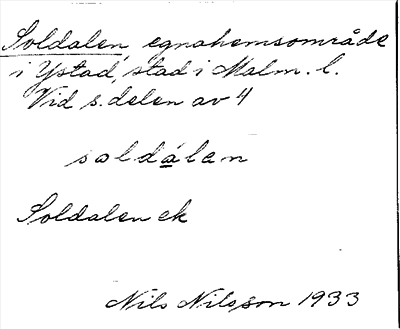 Soldalen, egnahemsområde
i Ystad, stad i Malm. l.
Vid s. delen av 4
soldálen
Soldalen ek
Nils Nilsson 1933